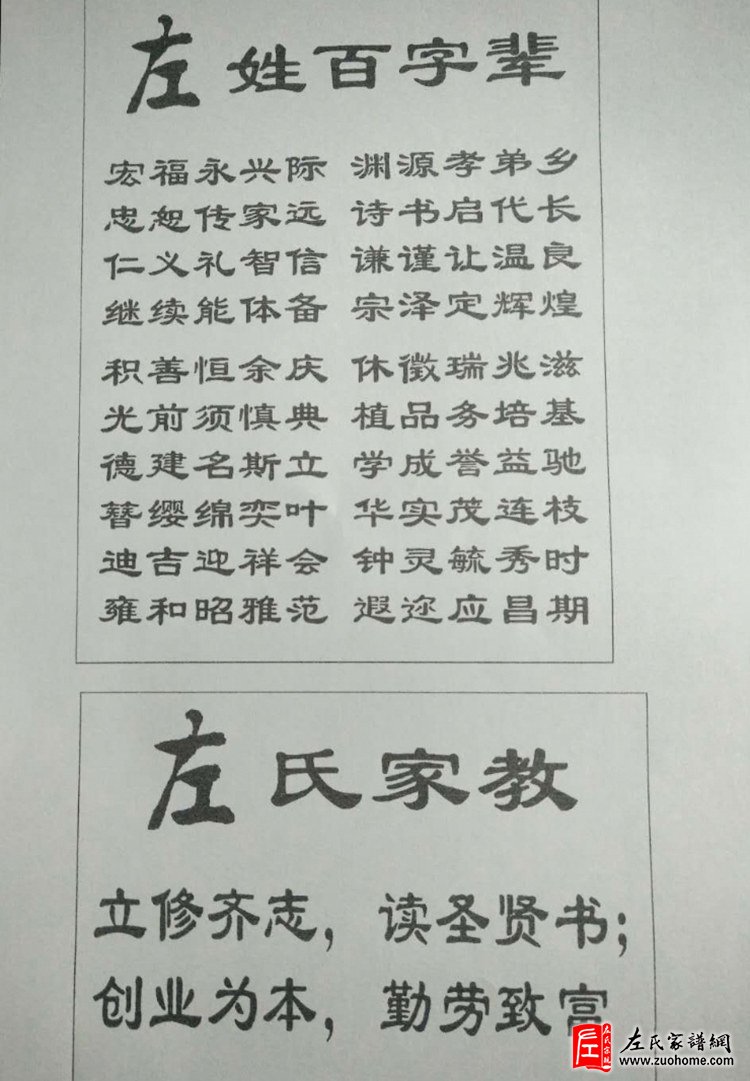 左姓百字辈
宏福永兴际 渊源孝弟乡
忠恕传家远 诗书启代长
仁义礼智信 谦谨让温良
继续能体备 宗泽定辉煌
积善恒余庆 休徵瑞兆滋
光前须慎典 植品务培基
德建名斯立 学成誉益驰
簪缨绵奕叶 华实茂连枝
迪吉迎祥会 钟灵毓秀时
雍和昭雅范 遐迩应昌期
左氏家教
立修齐志，读圣贤书；
创业为本，勤劳致富
左氏宗亲
左氏家譜網
www.zuohome.com